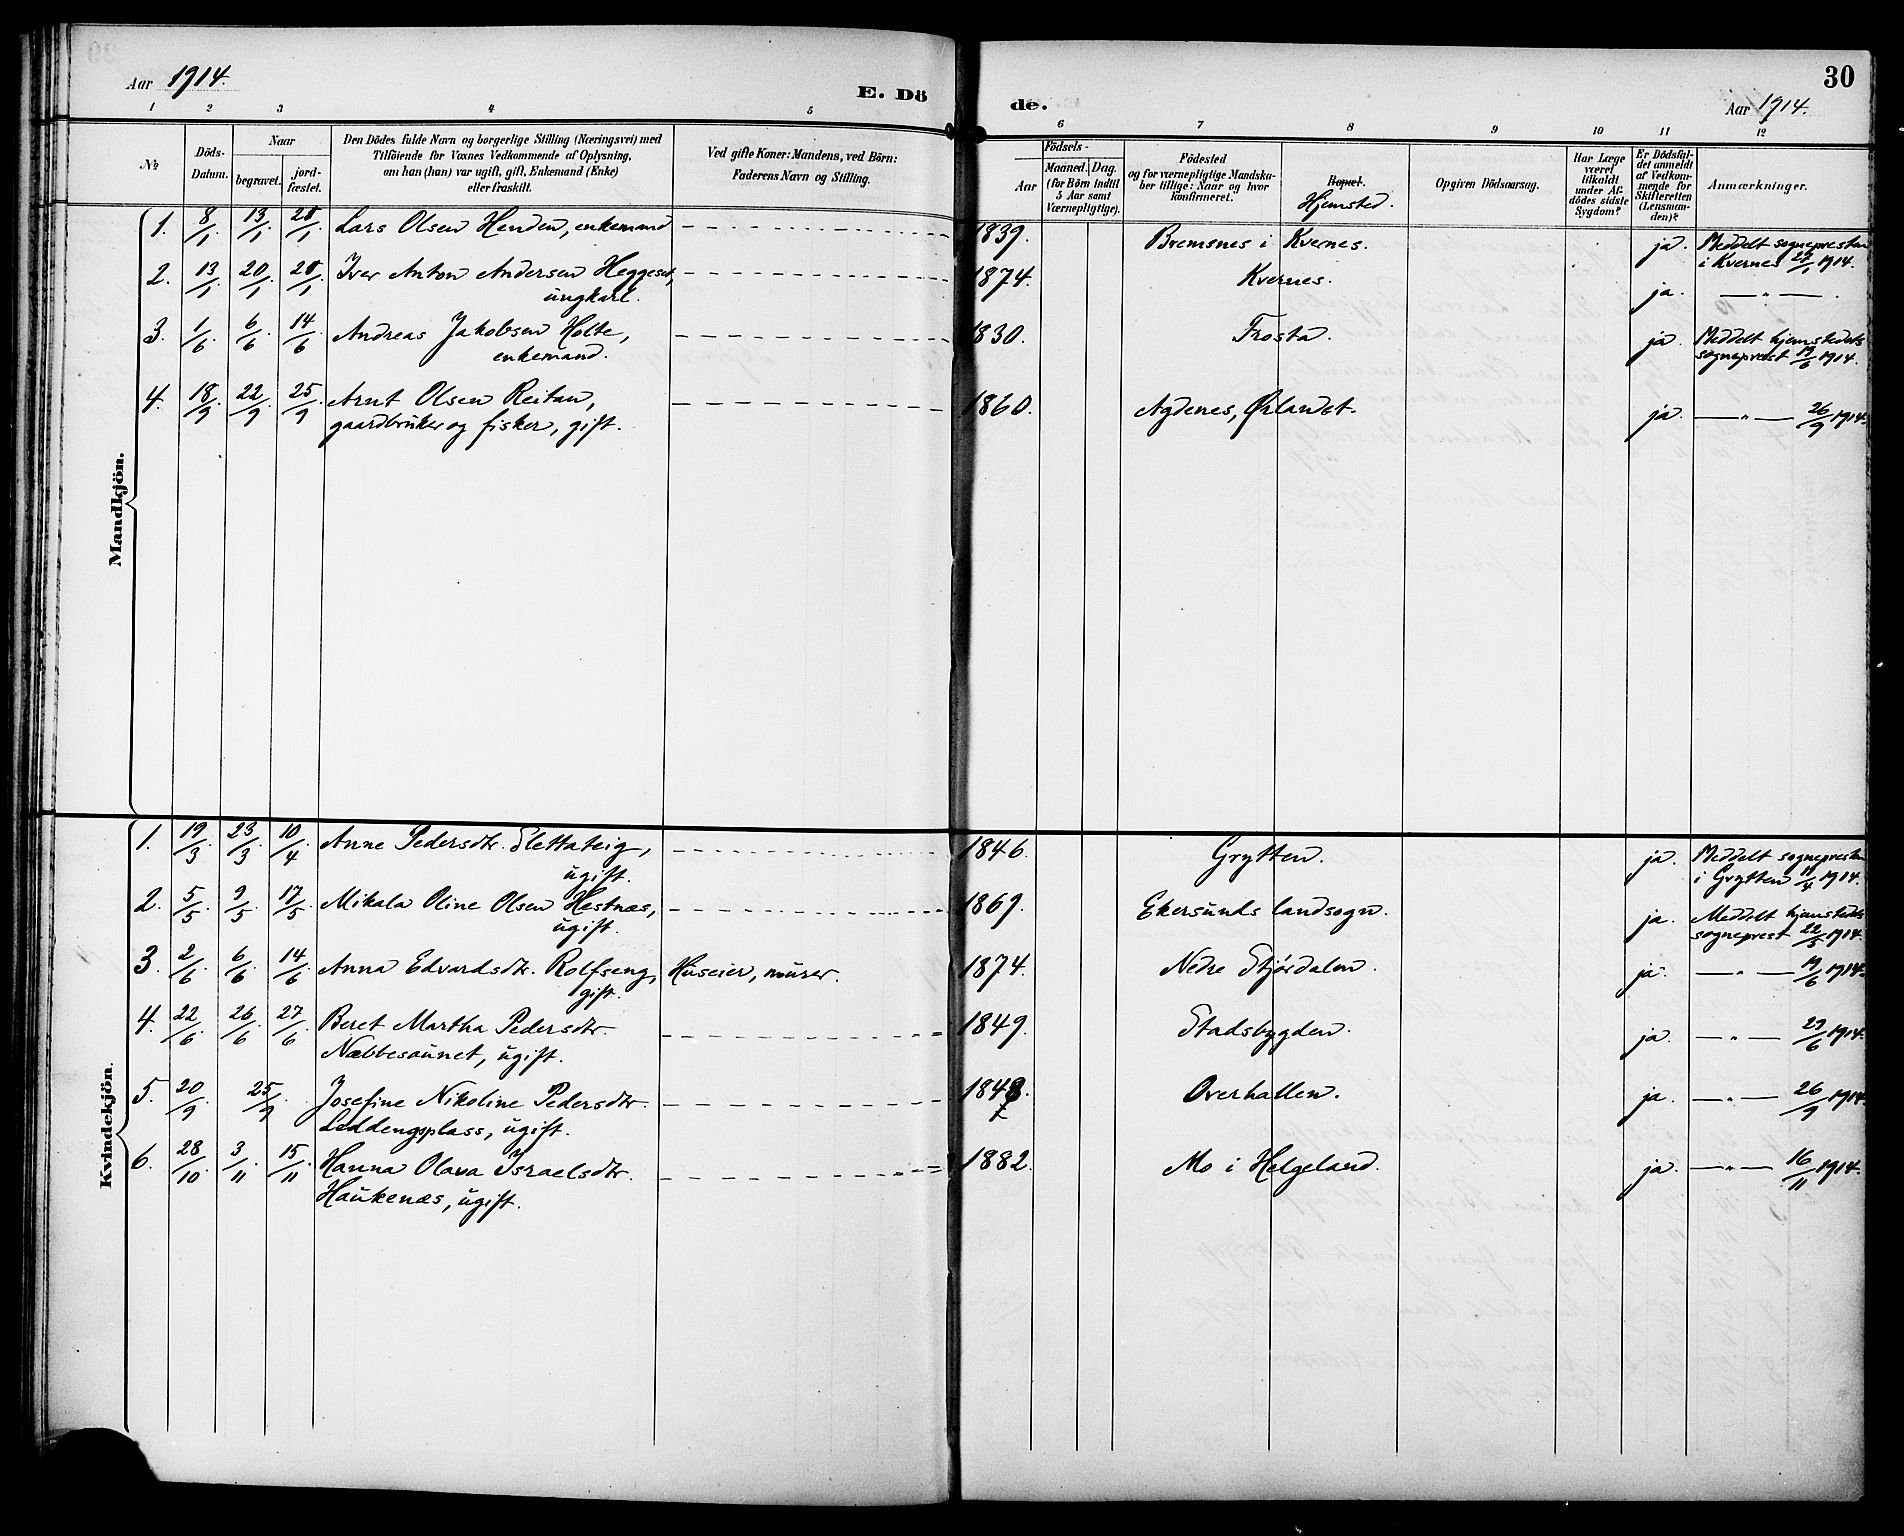 Aar 1914.
E. Dö
de.
30
Aar 1914.
1 2 3 4 5
6 7 8 9 10 11 12
No
Döds-
Datum.
Naar
begravet.
jord-
fæstet.
Den Dödes fulde Navn og borgerlige Stilling (Næringsvei) med
Tilföiende for Voxnes Vedkommende af Oplysning,
om han (hun) var ugift, gift, Enkemand (Enke)
eller fraskilt.
Ved gifte Koner: Mandens, ved Börn:
Faderens Navn og Stilling.
Födsels-
Aar
Maaned. Dag.
(for Börn indtil
5 Aar samt
Værnepligtige).
Födested
og for værnepligtige Mandska-
ber tillige: Naar og hvor
konfirmeret.
Bopæl.
Hjemsted.
Opgiven Dödsaarsag.
Har Læge
været
tilkaldt
under Af-
dödes sidste
Sygdom?
Er Dödsfal-
det anmeldt
af Vedkom-
mende for
Skifteretten
(Lensman-
den)?
Anmærkninger.
Mandkjön.
1. 8/1. 13/1. Lars Olsen Henden, enkemand 1839. Bremsnes i Kvernes. ja. Meddelt sognepresten
i Kvernes 1914.
2. 13/1. 20/1. Iver Anton Andersen Heggeset, 1874. Kvernes. ja. — " — .
ungkarl.
3. 1/6. 6/6. 14/6. Andreas Jakobsen Holte, 1830. Frosta. ja. Meddelt hjemstedets
enkemand. sogneprest 19/6 1914.
4. 18/9. 22/9. 25/9. Arnt Olsen Reitan, 1860. Agdenes, Ørlandet. ja. — " — 26/9 1914.
gaardbruker og fisker, gift.
Kvindekjön.
1. 19/3. 23/3. 10/4. Anne Pedersdtr. Slettateig, 1846. Grytten. ja. Meddelt sognepresten
ugift. i Grytten 11/4 1914.
2. 5/5. 9/5. 17/5. Mikala Oline Olsen Hestnæs, 1869. Ekersunds landsogn. ja. Meddelt hjemstedets
ugift. sogneprest 22/5 1914.
3. 2/6. 6/6. 14/6. Anna Edvardsdtr. Rolfseng, Huseier, murer. 1874. Nedre Stjørdalen. ja. — " — 19/6 1914.
gift.
4. 22/6. 26/6. 27/6. Beret Martha Pedersdtr. 1849. Stadsbygden. ja. — " — 29/6 1914.
Næbbesaunet, ugift.
5. 20/9. 25/9. Josefine Nikoline Pedersdtr. 1848. Overhallen. ja. — " — 26/9 1914.
Leddengsplass, ugift.
6. 28/10. 3/11. 15/11. Hanna Olava Israelsdtr. 1882. Mo i Helgeland. ja. — " — 16/11 1914.
Haukenæs, ugift.